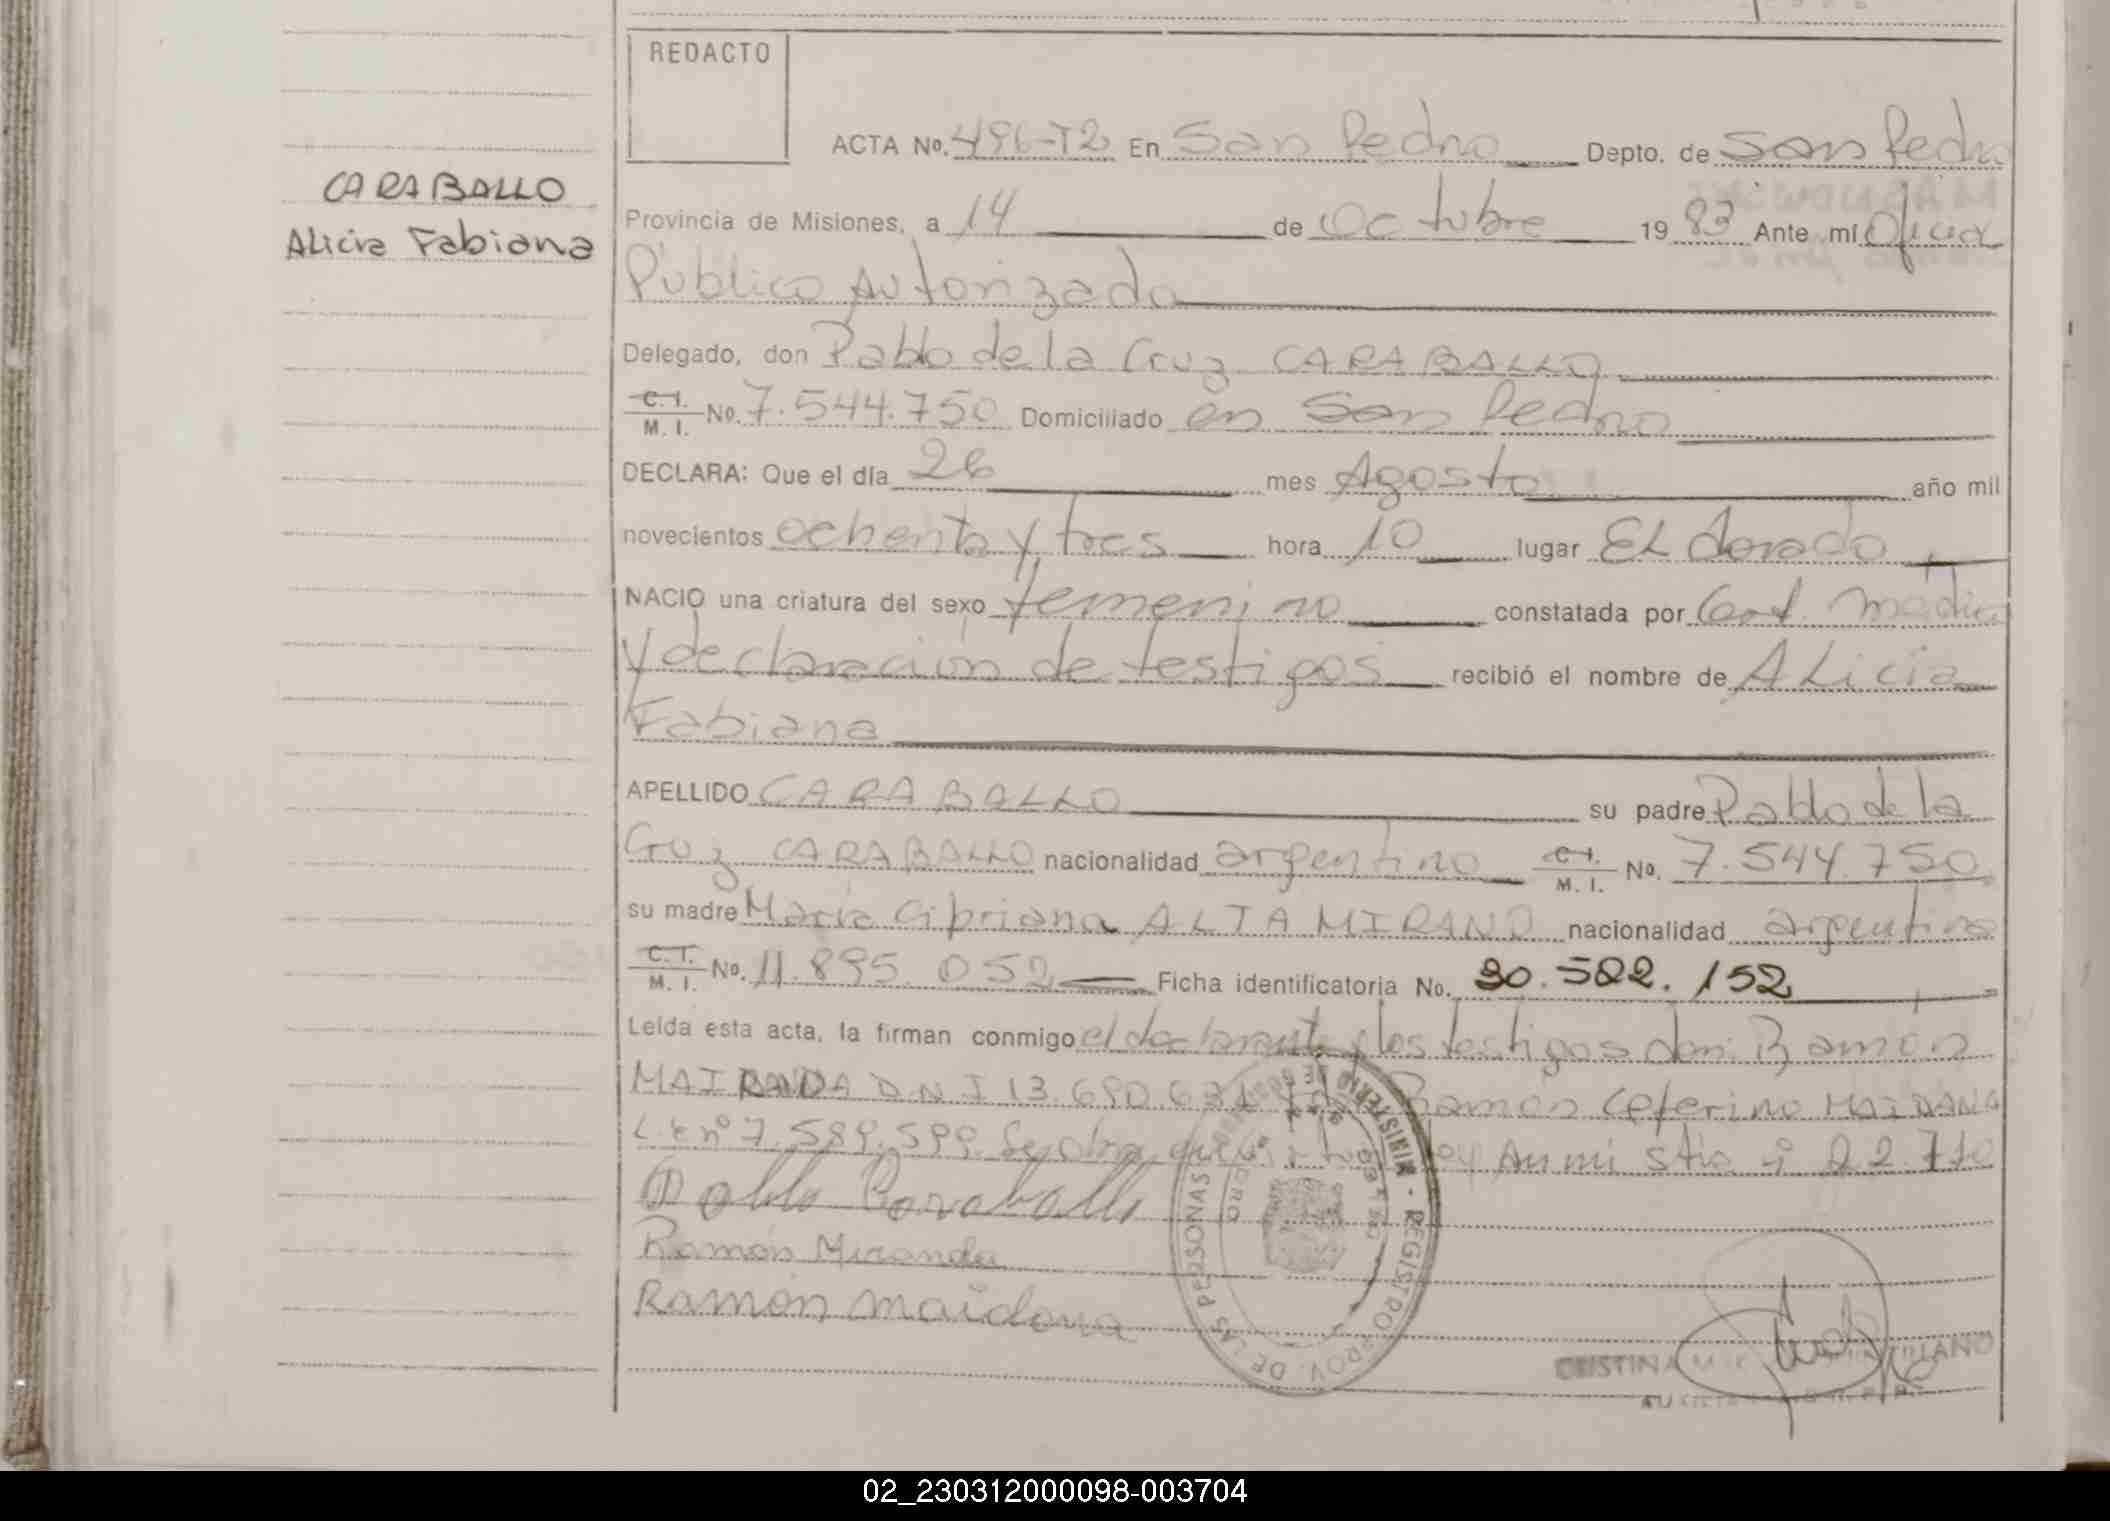 REDACTO
ACTA No. 496-T2 En San Pedro Depto. de San Pedro
CARABALLO
Alicia Fabiana
Provincia de Misiones, a 14 de Octubre 1983 Ante mí Oficial
Público Autorizado
Delegado, don Pablo de la Cruz CARABALLO
C.I. M. I. No. 7.544.750 Domiciliado en San Pedro
DECLARA: Que el día 26 mes Agosto año mil
novecientos ochenta y tres hora 10 lugar EL dorado
NACIO una criatura del sexo femenino constatada por Cert. medico
y declaración de testigos recibió el nombre de ALicia
Fabiana
APELLIDO CARABALLO su padre Pablo de la
Cruz CARABALLO nacionalidad argentino C.I. M. I. No. 7.544.750
su madre Maria Cipriana ALTAMIRANO nacionalidad argentina
C.I. M. I. No. 11.895.052 Ficha identificatoria No. 30.582.152
Leída esta acta, la firman conmigo el declarante y los testigos don: Ramon
MAIRANDA D.N.I 13.690.631 Ramón Ceferino MAIDANA
L.E nº 7.589.599.
Pablo Caraballo
Ramón Miranda
Ramon maidana
MINISTERIO DE GOBIERNO · REGISTRO PROV. DE LAS PERSONAS
CRISTINA
02_230312000098-003704